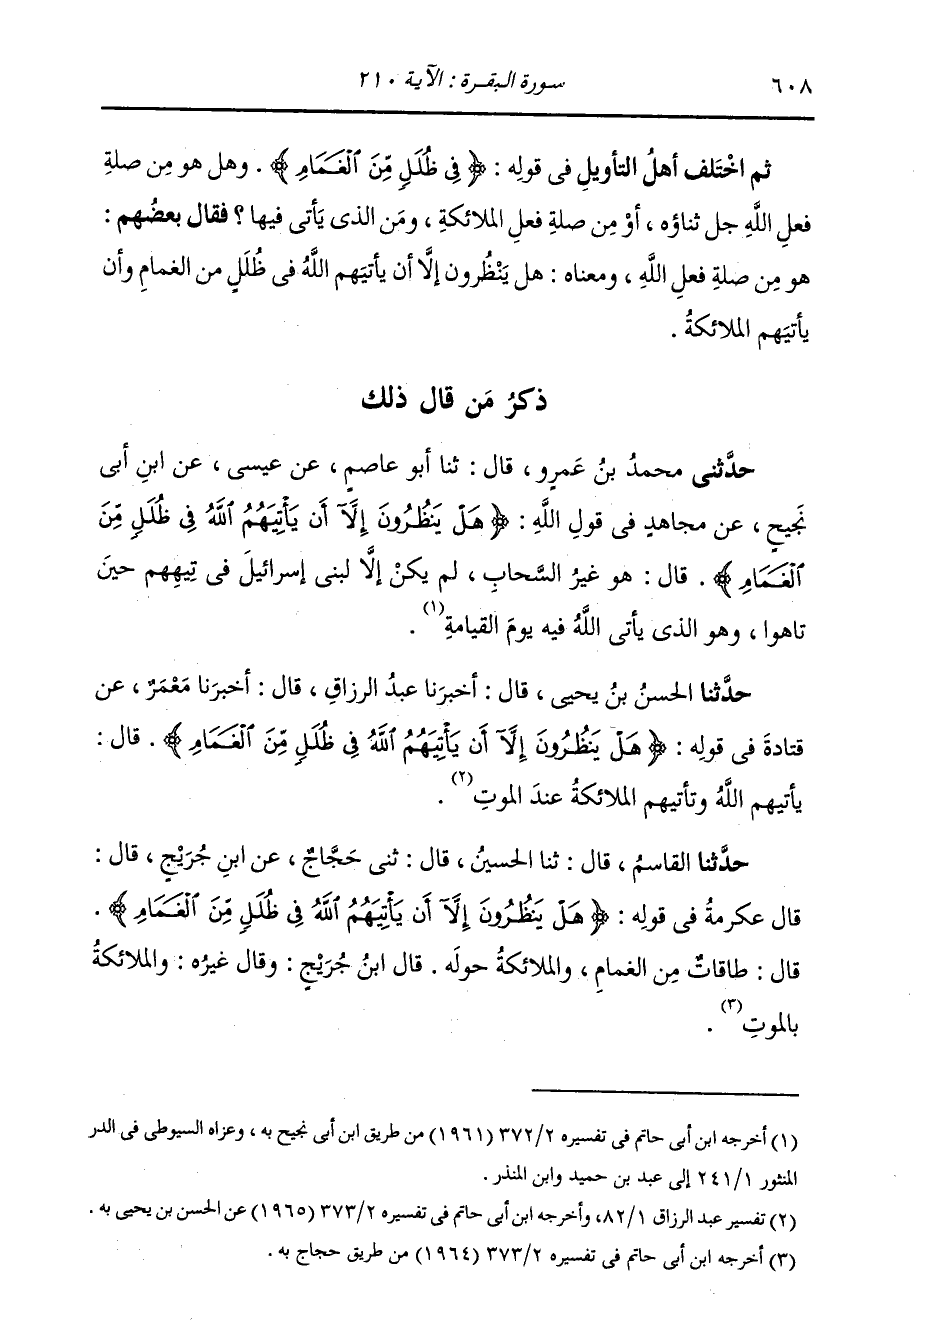 ٦٠٨ سورة البقرة : الآية ٢١٠
ثم اخْتَلف أهلُ التأويلِ فى قولِه : ﴿ فِى ظُلَلٍ مِّنَ ٱلْغَمَامِ ﴾ . وهل هو مِن صلةِ
فعلِ اللَّهِ جل ثناؤه ، أوْ مِن صلةِ فعلِ الملائكةِ ، ومَن الذى يَأتى فيها ؟ فقال بعضُهم :
هو مِن صلةِ فعلِ اللَّهِ ، ومعناه : هل يَنْظُرون إلَّا أن يأتيَهم اللَّهُ فى ظُلَلٍ من الغمامِ وأن
يأتيَهم الملائكةُ .
ذكرُ مَن قال ذلك
حدَّثنى محمدُ بنُ عَمرٍو ، قال : ثنا أبو عاصمٍ ، عن عيسى ، عن ابنِ أبى
نَجيحٍ ، عن مجاهدٍ فى قولِ اللَّهِ : ﴿ هَلْ يَنظُرُونَ إِلَّآ أَن يَأْتِيَهُمُ ٱللَّهُ فِى ظُلَلٍ مِّنَ
ٱلْغَمَامِ ﴾ . قال : هو غيرُ السَّحابِ ، لم يكنْ إلَّا لبنى إسرائيلَ فى تِيهِهم حينَ
تاهوا ، وهو الذى يأتى اللَّهُ فيه يومَ القيامةِ(١) .
حدَّثنا الحسنُ بنُ يحيى ، قال : أخبرَنا عبدُ الرزاقِ ، قال : أخبرَنا مَعْمَرٌ ، عن
قتادةَ فى قولِه : ﴿ هَلْ يَنظُرُونَ إِلَّآ أَن يَأْتِيَهُمُ ٱللَّهُ فِى ظُلَلٍ مِّنَ ٱلْغَمَامِ ﴾ . قال :
يأتيهم اللَّهُ وتأتيهم الملائكةُ عندَ الموتِ(٢) .
حدَّثنا القاسمُ ، قال : ثنا الحسينُ ، قال : ثنى حَجَّاجٌ ، عن ابنِ جُرَيْجٍ ، قال :
قال عكرمةُ فى قولِه : ﴿ هَلْ يَنظُرُونَ إِلَّآ أَن يَأْتِيَهُمُ ٱللَّهُ فِى ظُلَلٍ مِّنَ ٱلْغَمَامِ ﴾ .
قال : طاقاتٌ مِن الغمامِ ، والملائكةُ حولَه . قال ابنُ جُرَيْجٍ : وقال غيرُه : والملائكةُ
بالموتِ(٣) .
(١) أخرجه ابن أبى حاتم فى تفسيره ٣٧٢/٢ (١٩٦١) من طريق ابن أبى نجيح به ، وعزاه السيوطى فى الدر
المنثور ٢٤١/١ إلى عبد بن حميد وابن المنذر .
(٢) تفسير عبد الرزاق ٨٢/١، وأخرجه ابن أبى حاتم فى تفسيره ٣٧٣/٢ (١٩٦٥) عن الحسن بن يحيى به .
(٣) أخرجه ابن أبى حاتم فى تفسيره ٣٧٣/٢ (١٩٦٤) من طريق حجاج به .